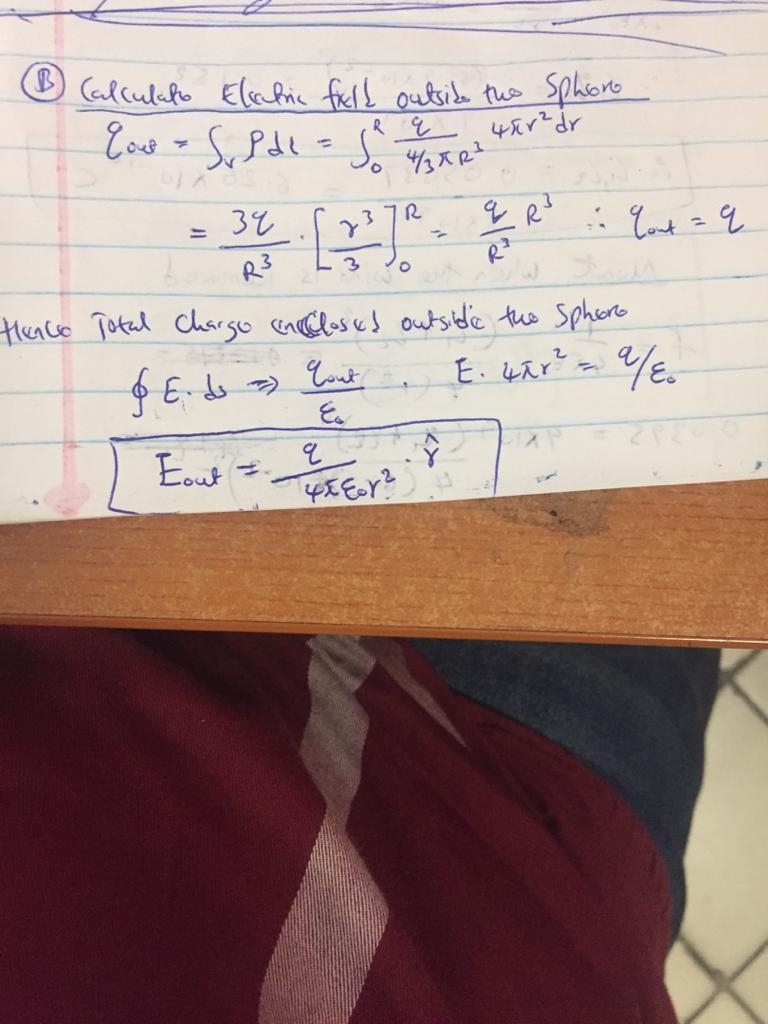 Ⓑ Calculate Electric field outside the Sphere
qout = ∫v ρdτ = ∫₀ᴿ q/(4/3πR³) 4πr²dr
= 3q/R³ · [r³/3]₀ᴿ = q/R³ R³ ∴ qout = q
Hence Total Charge enclosed outside the Sphere
∮ E. ds ⇒ qout/ε₀ . E. 4πr² = q/ε₀
Eout = q/4πε₀r² . r̂